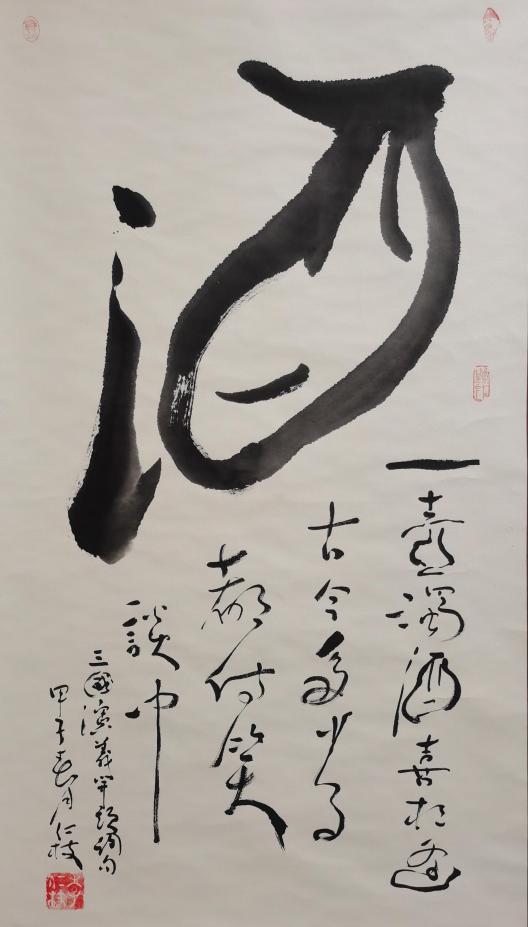 酒
一壺濁酒喜相逢
古今多少事
都付笑
談中
三國演義開頭詞句
甲午春月仁枝